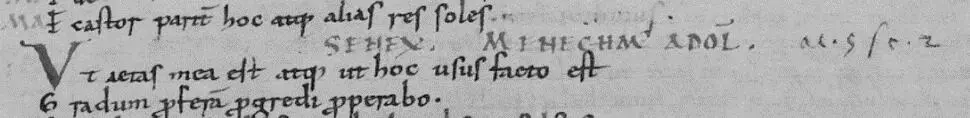 E castor parit̄ hoc atq; alias res soles.
SENEX. MENECHM̄ ADOL̄. ac. 5 sc. 2
Vt aetas mea est atq; ut hoc usus facto est
Gradum p̄ferā p̄gredi p̄perabo.